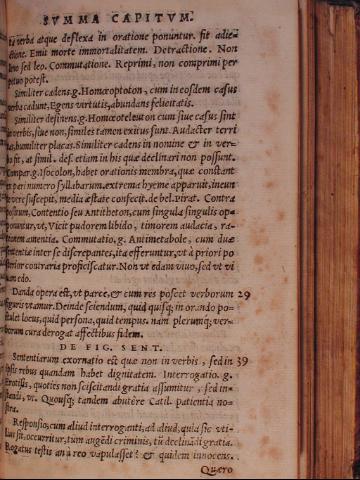 SVMMA CAPITVM.
verba atque deflexa in oratione ponuntur. fit adie-
ctione. Emit morte immortalitatem. Detractione. Non
sed leo. Commutatione. Reprimi, non comprimi per
potest.
Similiter cadens. g. Homœoptoton, cum in eosdem casus
verba cadunt, Egens virtutis, abundans felicitatis.
Similiter desinens. g. Homœoteleuton cum siue casus sint
in verbis, siue non, similes tamen exitus sunt. Audacter terri
humiliter placas. Similiter cadens in nomine & in ver-
fit, at simil. des. etiam in his quæ declinari non possunt.
Compar. g. Isocolon, habet orationis membra, quæ constant
pari numero syllabarum. extrema hyeme apparuit, ineun
te vere suscepit, media æstate confecit. de bel. Pirat. Contra
positum, Contentio seu Antitheton, cum singula singulis op-
ponuntur, vt, Vicit pudorem libido, timorem audacia, ra-
tionem amentia. Commutatio. g. Antimetabole, cum duæ
sententiæ inter se discrepantes, ita efferuntur, vt à priori po
sterior contraria proficiscatur. Non vt edam viuo, sed vt vi
edo.
Danda opera est, vt parce, & cum res poscet verborum 29
figuris vtamur. Deinde sciendum, quid quisq; in orando po-
stulet locus, quid persona, quid tempus. nam plerumq; ver-
borum cura derogat affectibus fidem.
DE FIG. SENT.
Sententiarum exornatio est quæ non in verbis, sed in 39
ipsis rebus quandam habet dignitatem. Interrogatio. g.
Erotisis, quoties non sciscitandi gratia assumitur, sed in-
standi, vt. Quousq; tandem abutêre Catil. patientia no-
stra.
Responsio, cum aliud interroganti, ad aliud, quia sic vti-
lius sit, occurritur, tum augēdi criminis, tū declinādi gratia.
Rogatus testis an à reo vapulasset? & quidem innocens.
Quæro